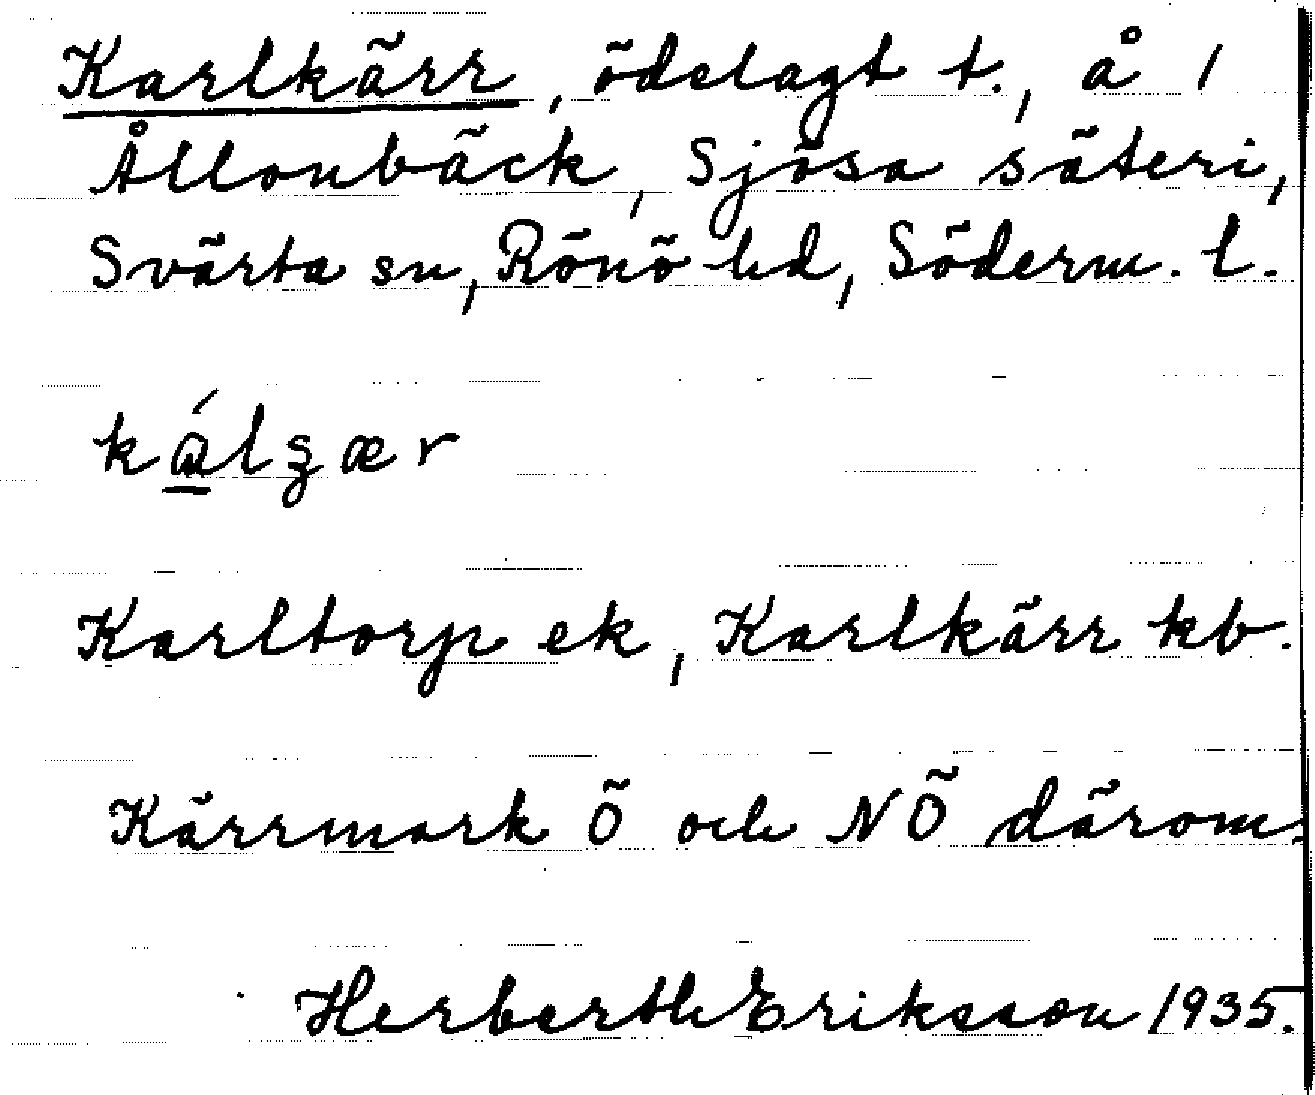 Karlkärr, ödelagt t., å 1
Ållonbäck, Sjösa säteri,
Svärta sn, Rönö hd, Söderm. l.
Karltorp ek, Karlkärr kb.
Kärrmark Ö och NÖ därom.
Herberth Eriksson 1935.